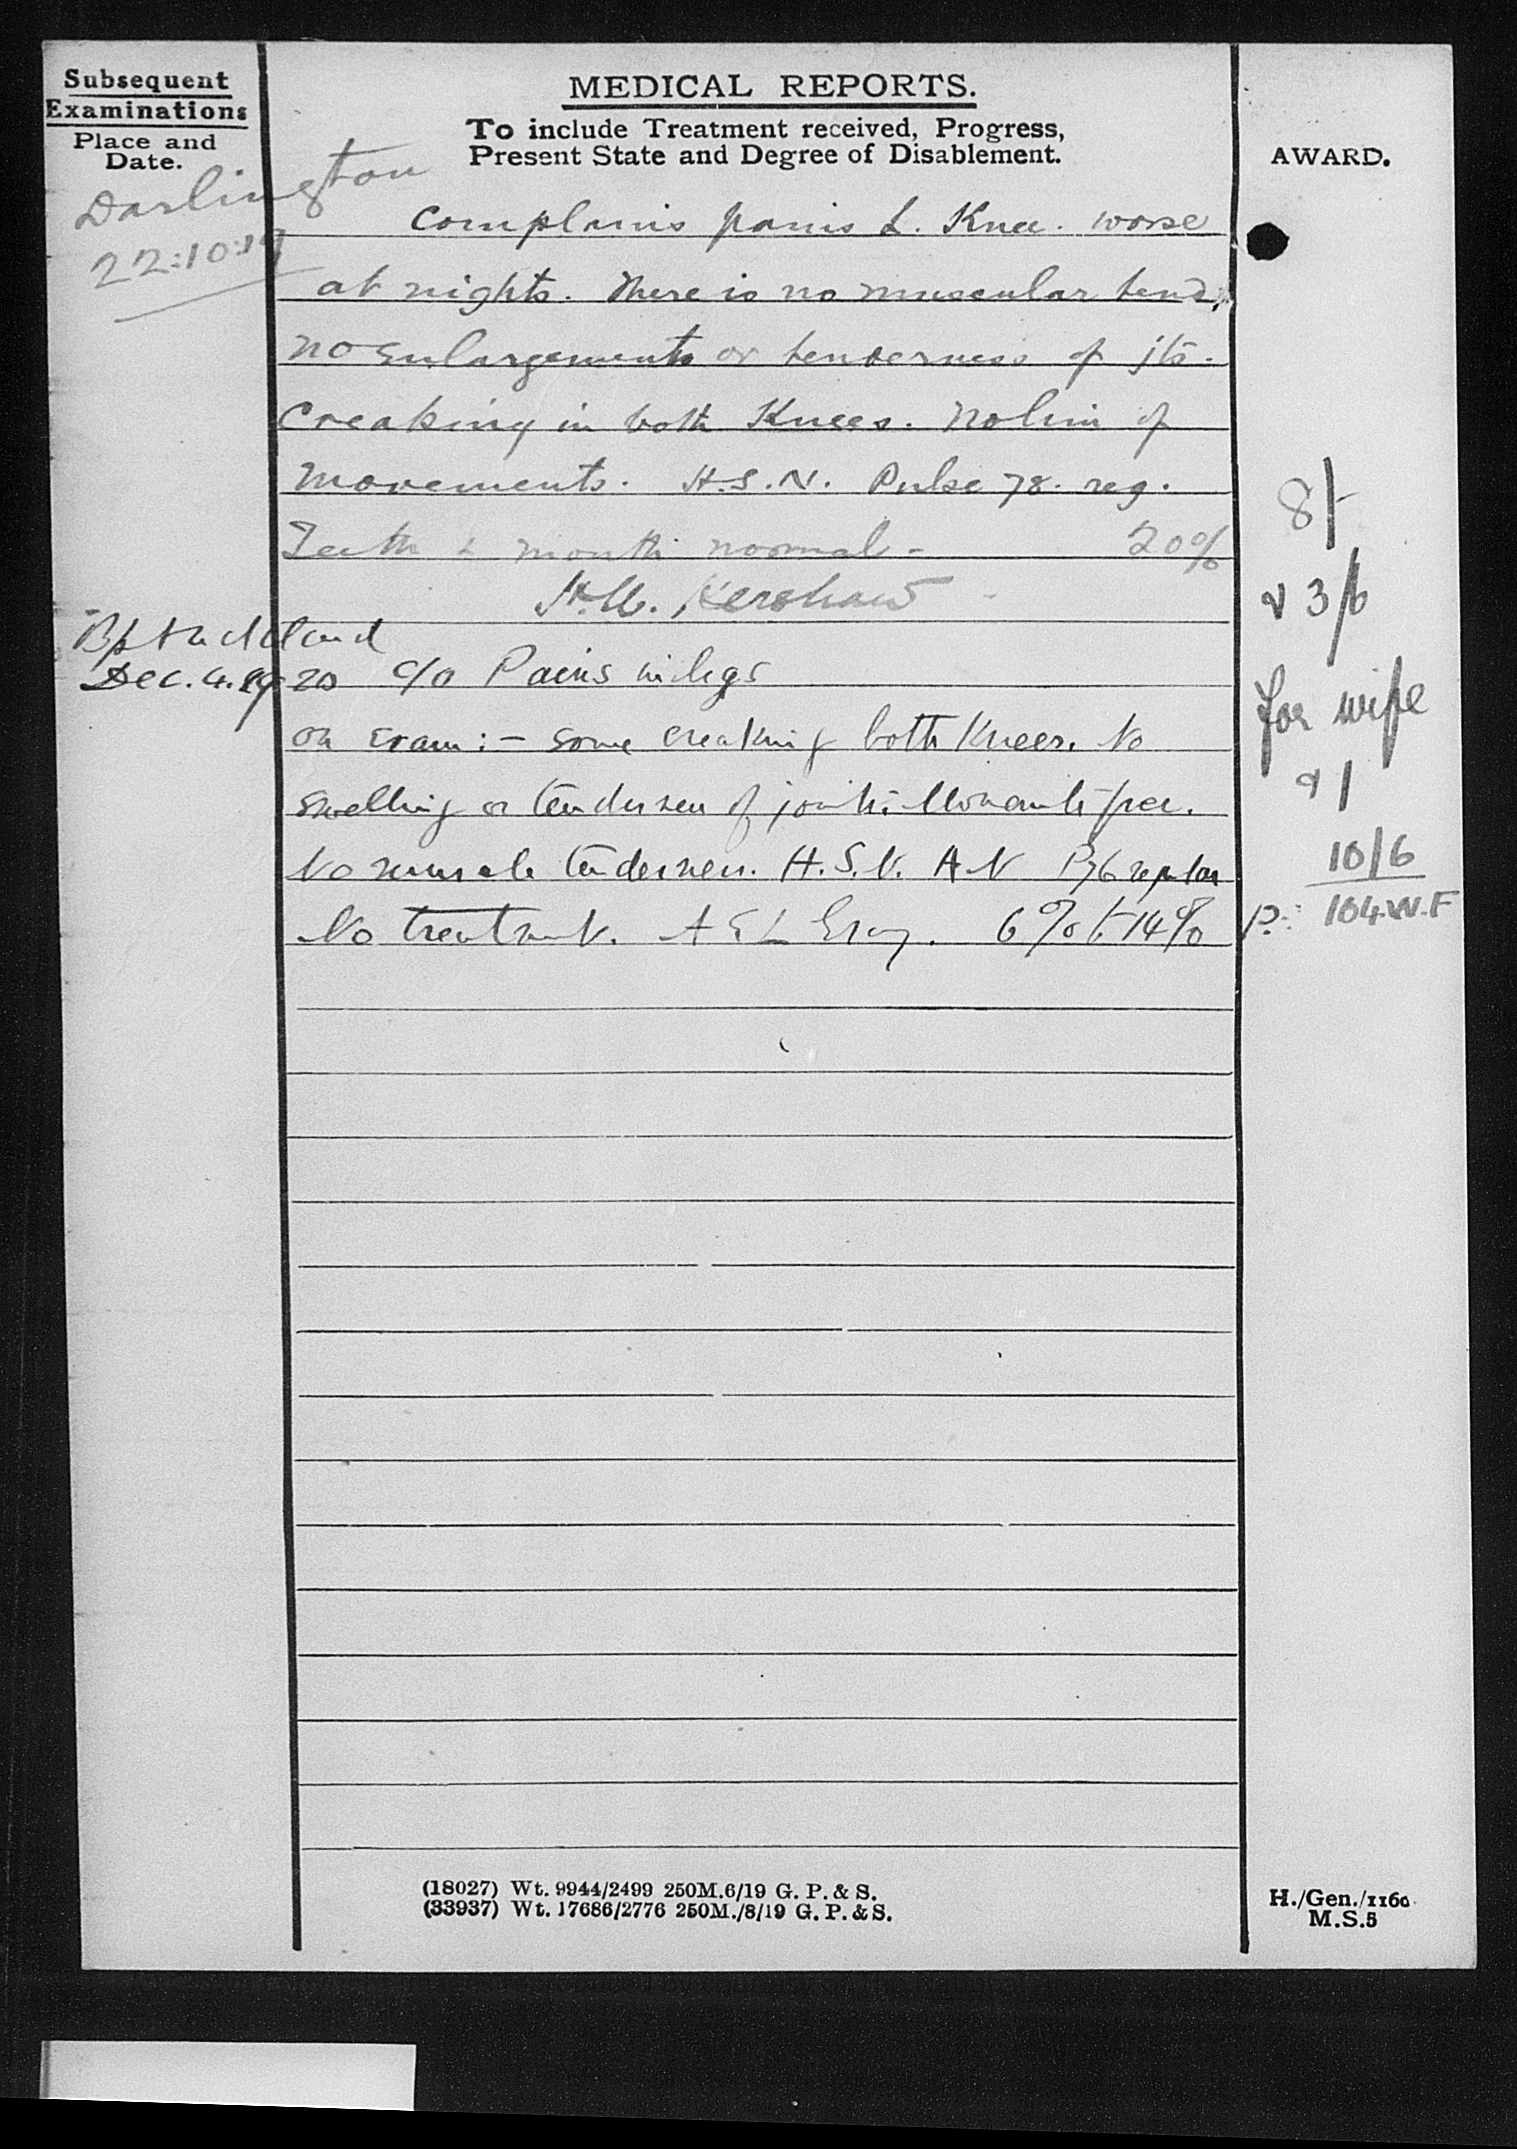 Subsequent
Examinations
Place and
Date.
MEDICAL REPORTS.
To include Treatment received, Progress,
Present State and Degree of Disablement.
AWARD.
Darlington
22:10:19
Complains pains L. Knee. worse
at nights. There is no muscular tend.
no enlargements or tenderness of jts.
Creaking in both Knees. No lim of
movements. H.S.N. Pulse 78. reg.
Teeth & mouth normal - 20%
Kershaw
8/-
& 3/6
for wife
& 1
10/6
104.W.F
Bp Auckland
Dec. 4. 1920 c/o Pains in legs
on exam :- some creaking both Knees. No
swelling or tenderness of joints. Movements free.
No muscle tenderness. H.S.N. A N P 76 regular
No treatment. A E L Gray. 6% to 14%
(18027) Wt. 9944/2499 250M.6/19 G. P. & S.
(33937) Wt. 17686/2776 250M./8/19 G. P. & S.
H./Gen./1160
M.S.5